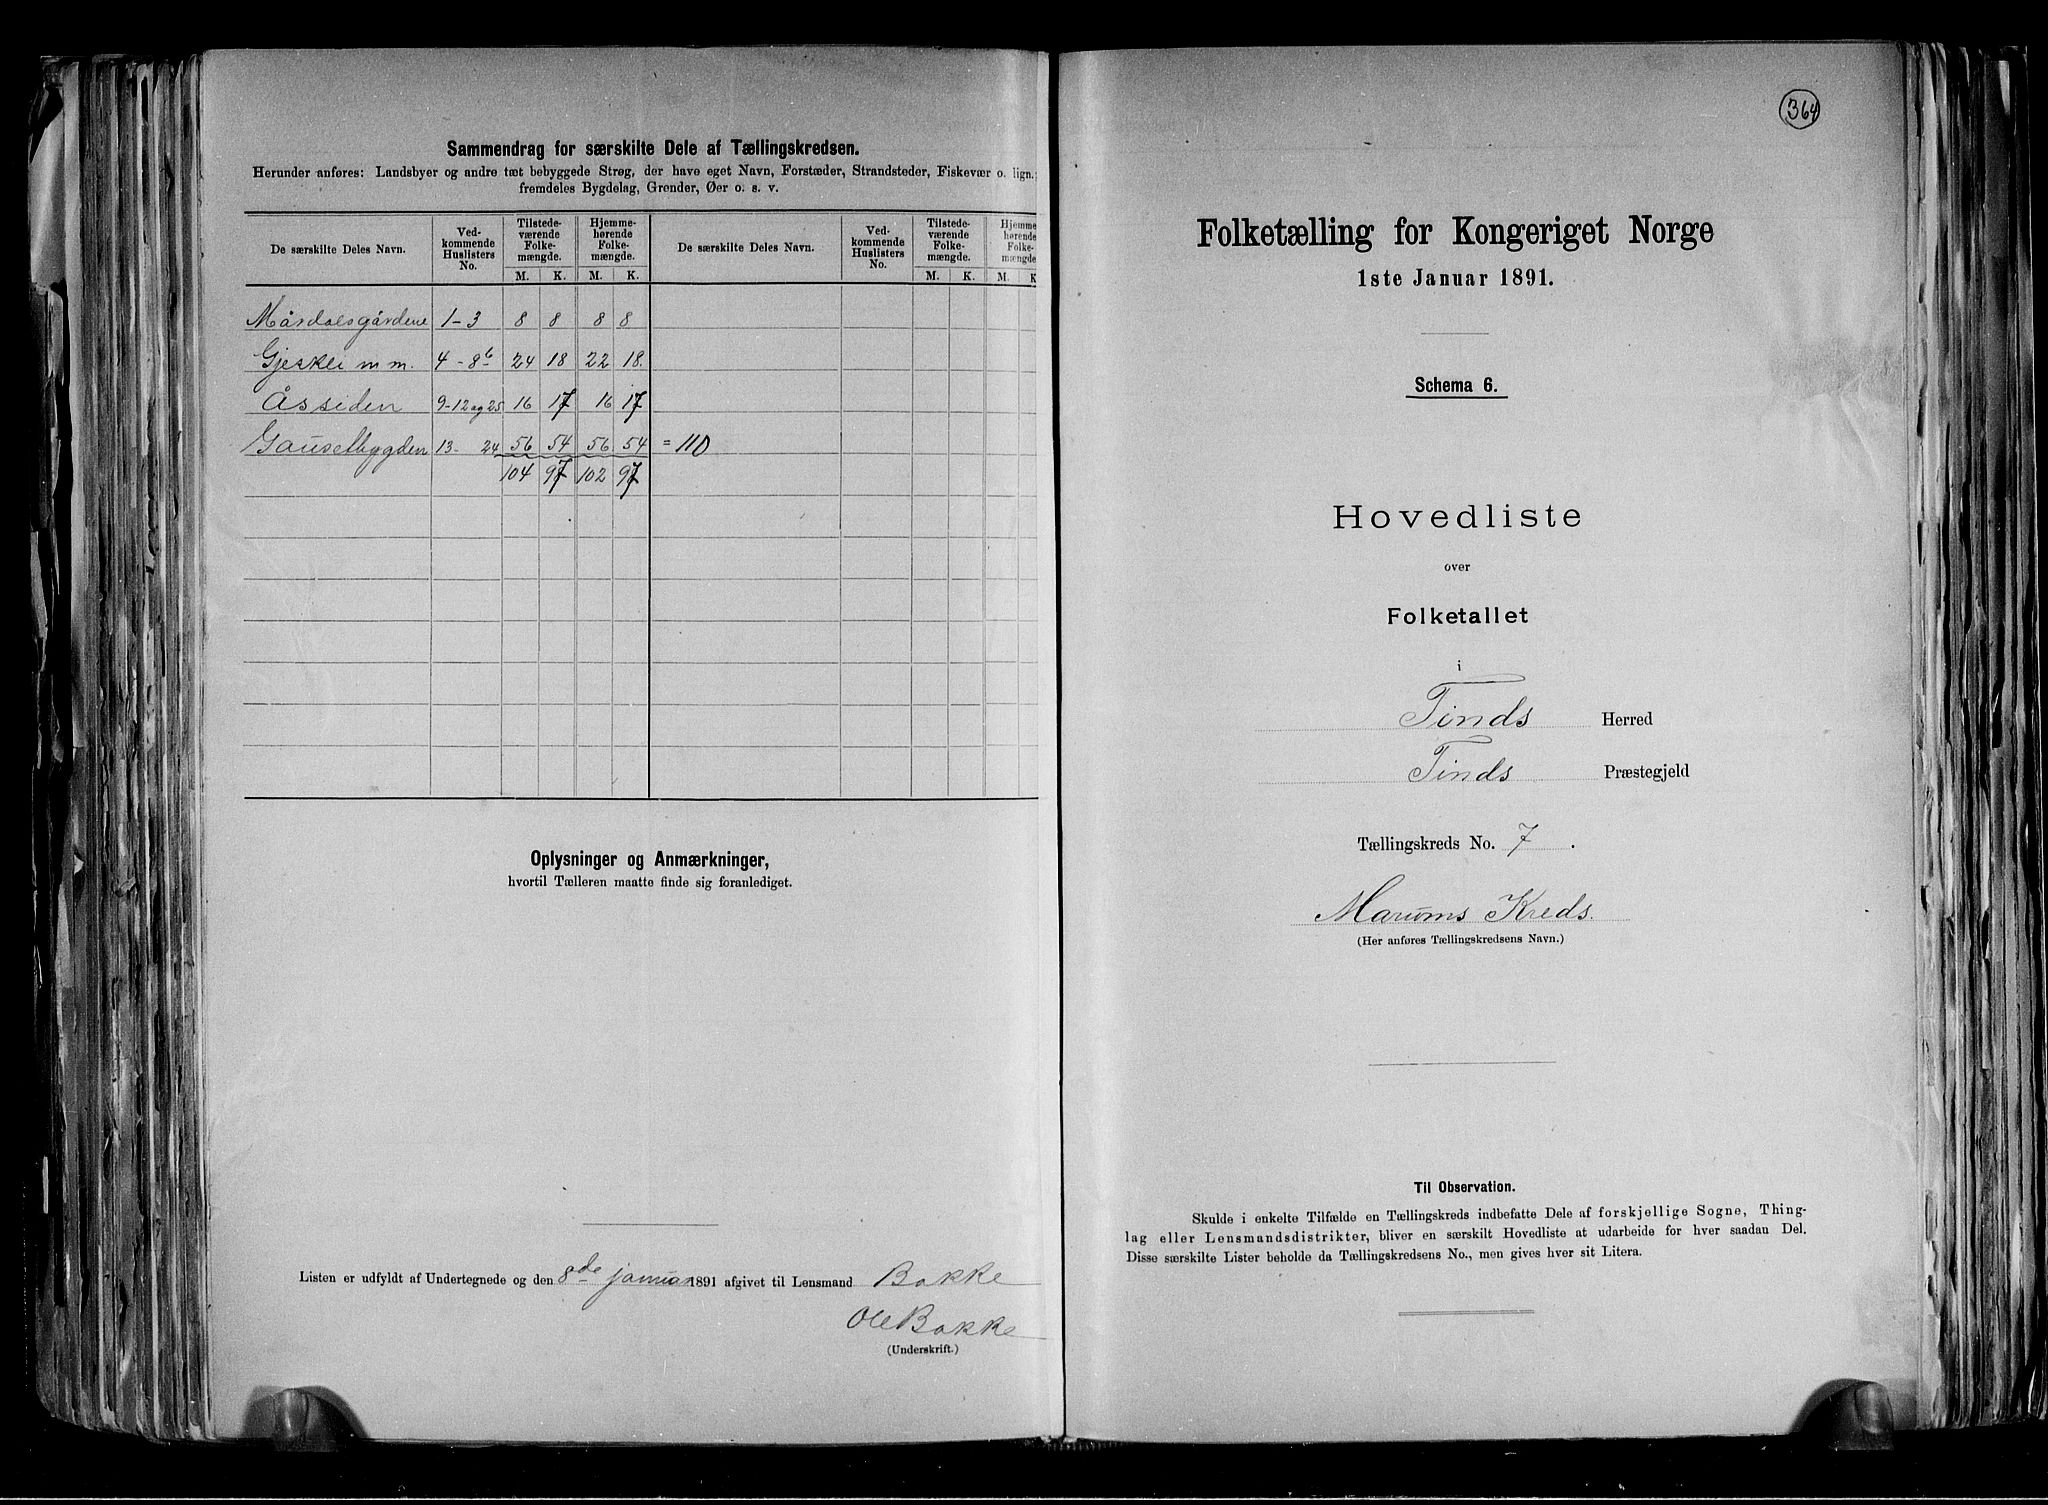 Sammendrag for særskilte Dele af Tællingskredsen.
Herunder anføres: Landsbyer og andre tæt bebyggede Strøg, der have eget Navn, Forstæder, Strandsteder, Fiskevær o. lign.;
fremdeles Bygdelag, Grender, Øer o. s. v.
De særskilte Deles Navn. Ved-kommende Huslisters No. Tilstede-værende Folke-mængde. Hjemme-hørende Folke-mængde. De særskilte Deles Navn. Ved-kommende Huslisters No. Tilstede-værende Folke-mængde. Hjemme-hørende Folke-mængde
M. K. M. K. M. K. M. K
Mårdalsgårdene 1-3 8 8 8 8
Gjeskei m m. 4-8b 24 18 22 18.
Åssiden 9-12 og 25 16 17 16 17
Gausetbygden 13- 24 56 54 56 54 = 110
104 97 102 97
Oplysninger og Anmærkninger,
hvortil Tælleren maatte finde sig foranlediget.
Listen er udfyldt af Undertegnede og den 8de januar 1891 afgivet til Lensmand Bakke
Ole Bakke
(Underskrift.)
364
Folketælling for Kongeriget Norge
1ste Januar 1891.
Schema 6.
Hovedliste
over
Folketallet
i
Tinds Herred
Tinds Præstegjeld
Tællingskreds No. 7.
Marums Kreds.
(Her anføres Tællingskredsens Navn.)
Til Observation.
Skulde i enkelte Tilfælde en Tællingskreds indbefatte Dele af forskjellige Sogne, Thing-
lag eller Lensmandsdistrikter, bliver en særskilt Hovedliste at udarbeide for hver saadan Del.
Disse særskilte Lister beholde da Tællingskredsens No., men gives hver sit Litera.